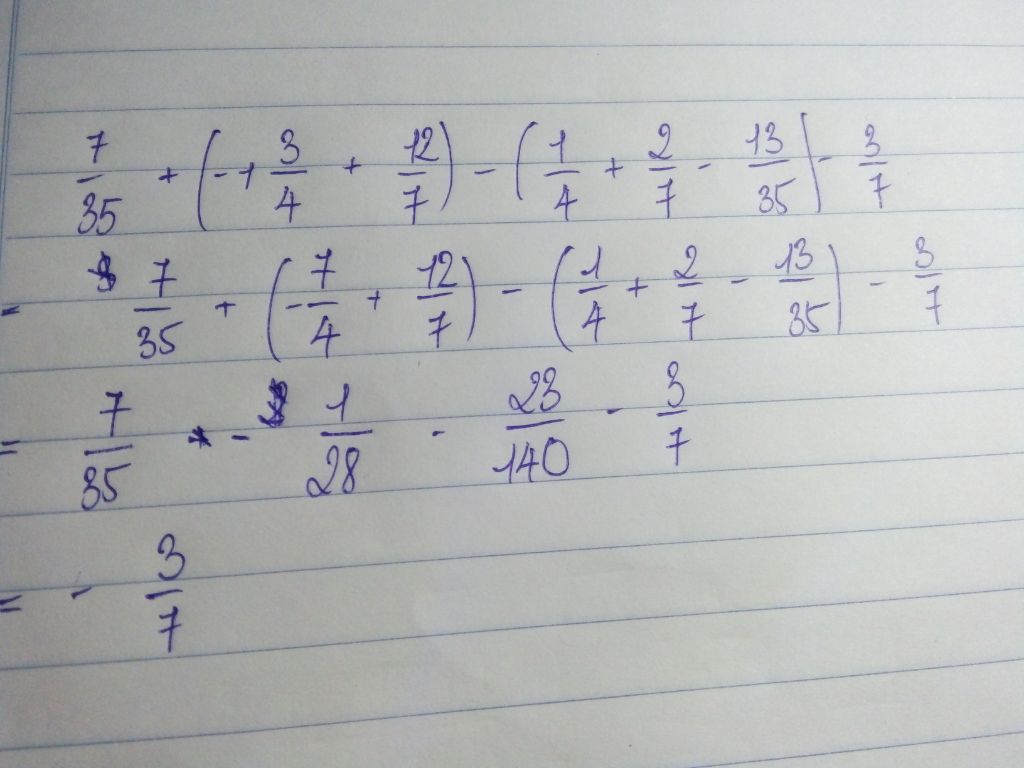 7/35 + (-1 3/4 + 12/7) - (1/4 + 2/7 - 13/35) - 3/7
= 7/35 + (-7/4 + 12/7) - (1/4 + 2/7 - 13/35) - 3/7
= 7/35 - 1/28 - 23/140 - 3/7
= - 3/7